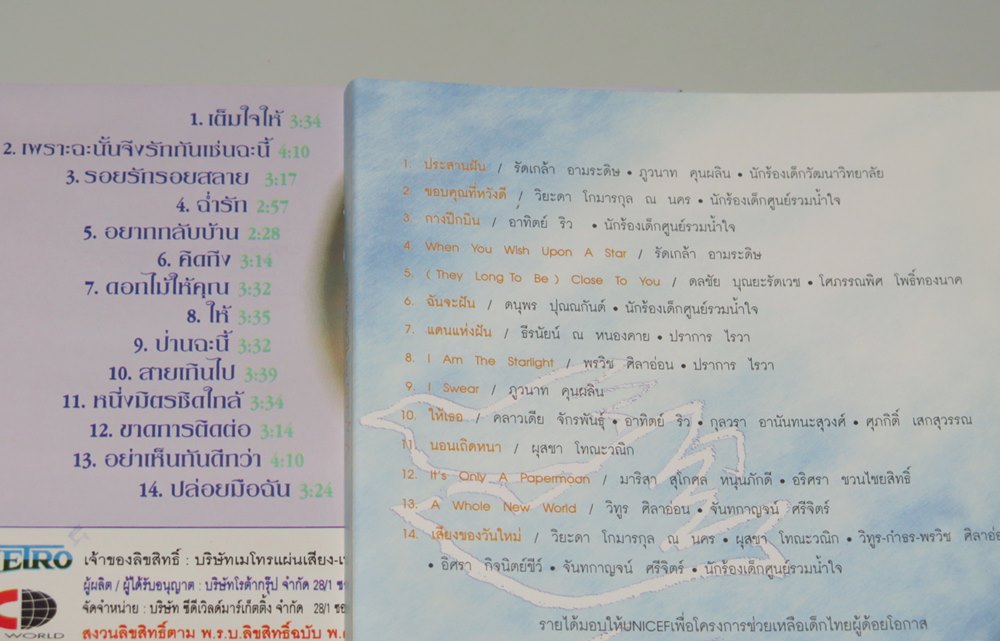 1. เต็มใจให้ 3:34
2. เพราะฉะนั้นจึงรักกันเช่นฉะนี้ 4:10
3. รอยรักรอยสลาย 3:17
4. ฉ่ำรัก 2:57
5. อยากกลับบ้าน 2:28
6. คิดถึง 3:14
7. ดอกไม้ให้คุณ 3:32
8. ให้ 3:35
9. ป่านฉะนี้ 3:32
10. สายเกินไป 3:39
11. หนึ่งมิตรชิดใกล้ 3:34
12. ขาดการติดต่อ 3:14
13. อย่าเห็นกันดีกว่า 4:10
14. ปล่อยมือฉัน 3:24
ETRO เจ้าของลิขสิทธิ์ : บริษัทเมโทรแผ่นเสียง-เ
ผู้ผลิต / ผู้ได้รับอนุญาต : บริษัทโรต้ากรุ๊ป จำกัด 28/1 ซ
จัดจำหน่าย : บริษัท ซีดีเวิลด์มาร์เก็ตติ้ง จำกัด 28/1 ซอ
CD WORLD
สงวนลิขสิทธิ์ตาม พ.ร.บ.ลิขสิทธิ์ฉบับ พ.
1. ประสานฝัน / รัดเกล้า อามระดิษ • ภูวนาท คุนผลิน • นักร้องเด็กวัฒนาวิทยาลัย
2. ขอบคุณที่หวังดี / วิยะดา โกมารกุล ณ นคร • นักร้องเด็กศูนย์รวมน้ำใจ
3. กางปีกบิน / อาทิตย์ ริว • นักร้องเด็กศูนย์รวมน้ำใจ
4. When You Wish Upon A Star / รัดเกล้า อามระดิษ
5. ( They Long To Be ) Close To You / ดลชัย บุณยะรัตเวช • โศภรรณพิศ โพธิ์ทองนาค
6. ฉันจะฝัน / ดนุพร ปุณณกันต์ • นักร้องเด็กศูนย์รวมน้ำใจ
7. แดนแห่งฝัน / ธีรนัยน์ ณ หนองคาย • ปราการ ไรวา
8. I Am The Starlight / พรวิช ศิลาอ่อน • ปราการ ไรวา
9. I Swear / ภูวนาท คุนผลิน
10. ให้เธอ / คลาวเดีย จักรพันธุ์ • อาทิตย์ ริว • กุลวรา อานันทนะสุวงศ์ • ศุภกิติ์ เสกสุวรรณ
11. นอนเถิดหนา / ผุสชา โทณะวณิก
12. It's Only A Papermoon / มาริสา สุโกศล หนุนภักดี • อริศรา ชวนไชยสิทธิ์
13. A Whole New World / วิทูร ศิลาอ่อน • จันทกาญจน์ ศรีจิตร์
14. เสียงของวันใหม่ / วิยะดา โกมารกุล ณ นคร • ผุสชา โทณะวณิก • วิทูร-กำธร-พรวิช ศิลาอ่
• อิศรา กิจนิตย์ชีว์ • จันทกาญจน์ ศรีจิตร์ • นักร้องเด็กศูนย์รวมน้ำใจ
รายได้มอบให้UNICEFเพื่อโครงการช่วยเหลือเด็กไทยผู้ด้อยโอกาส